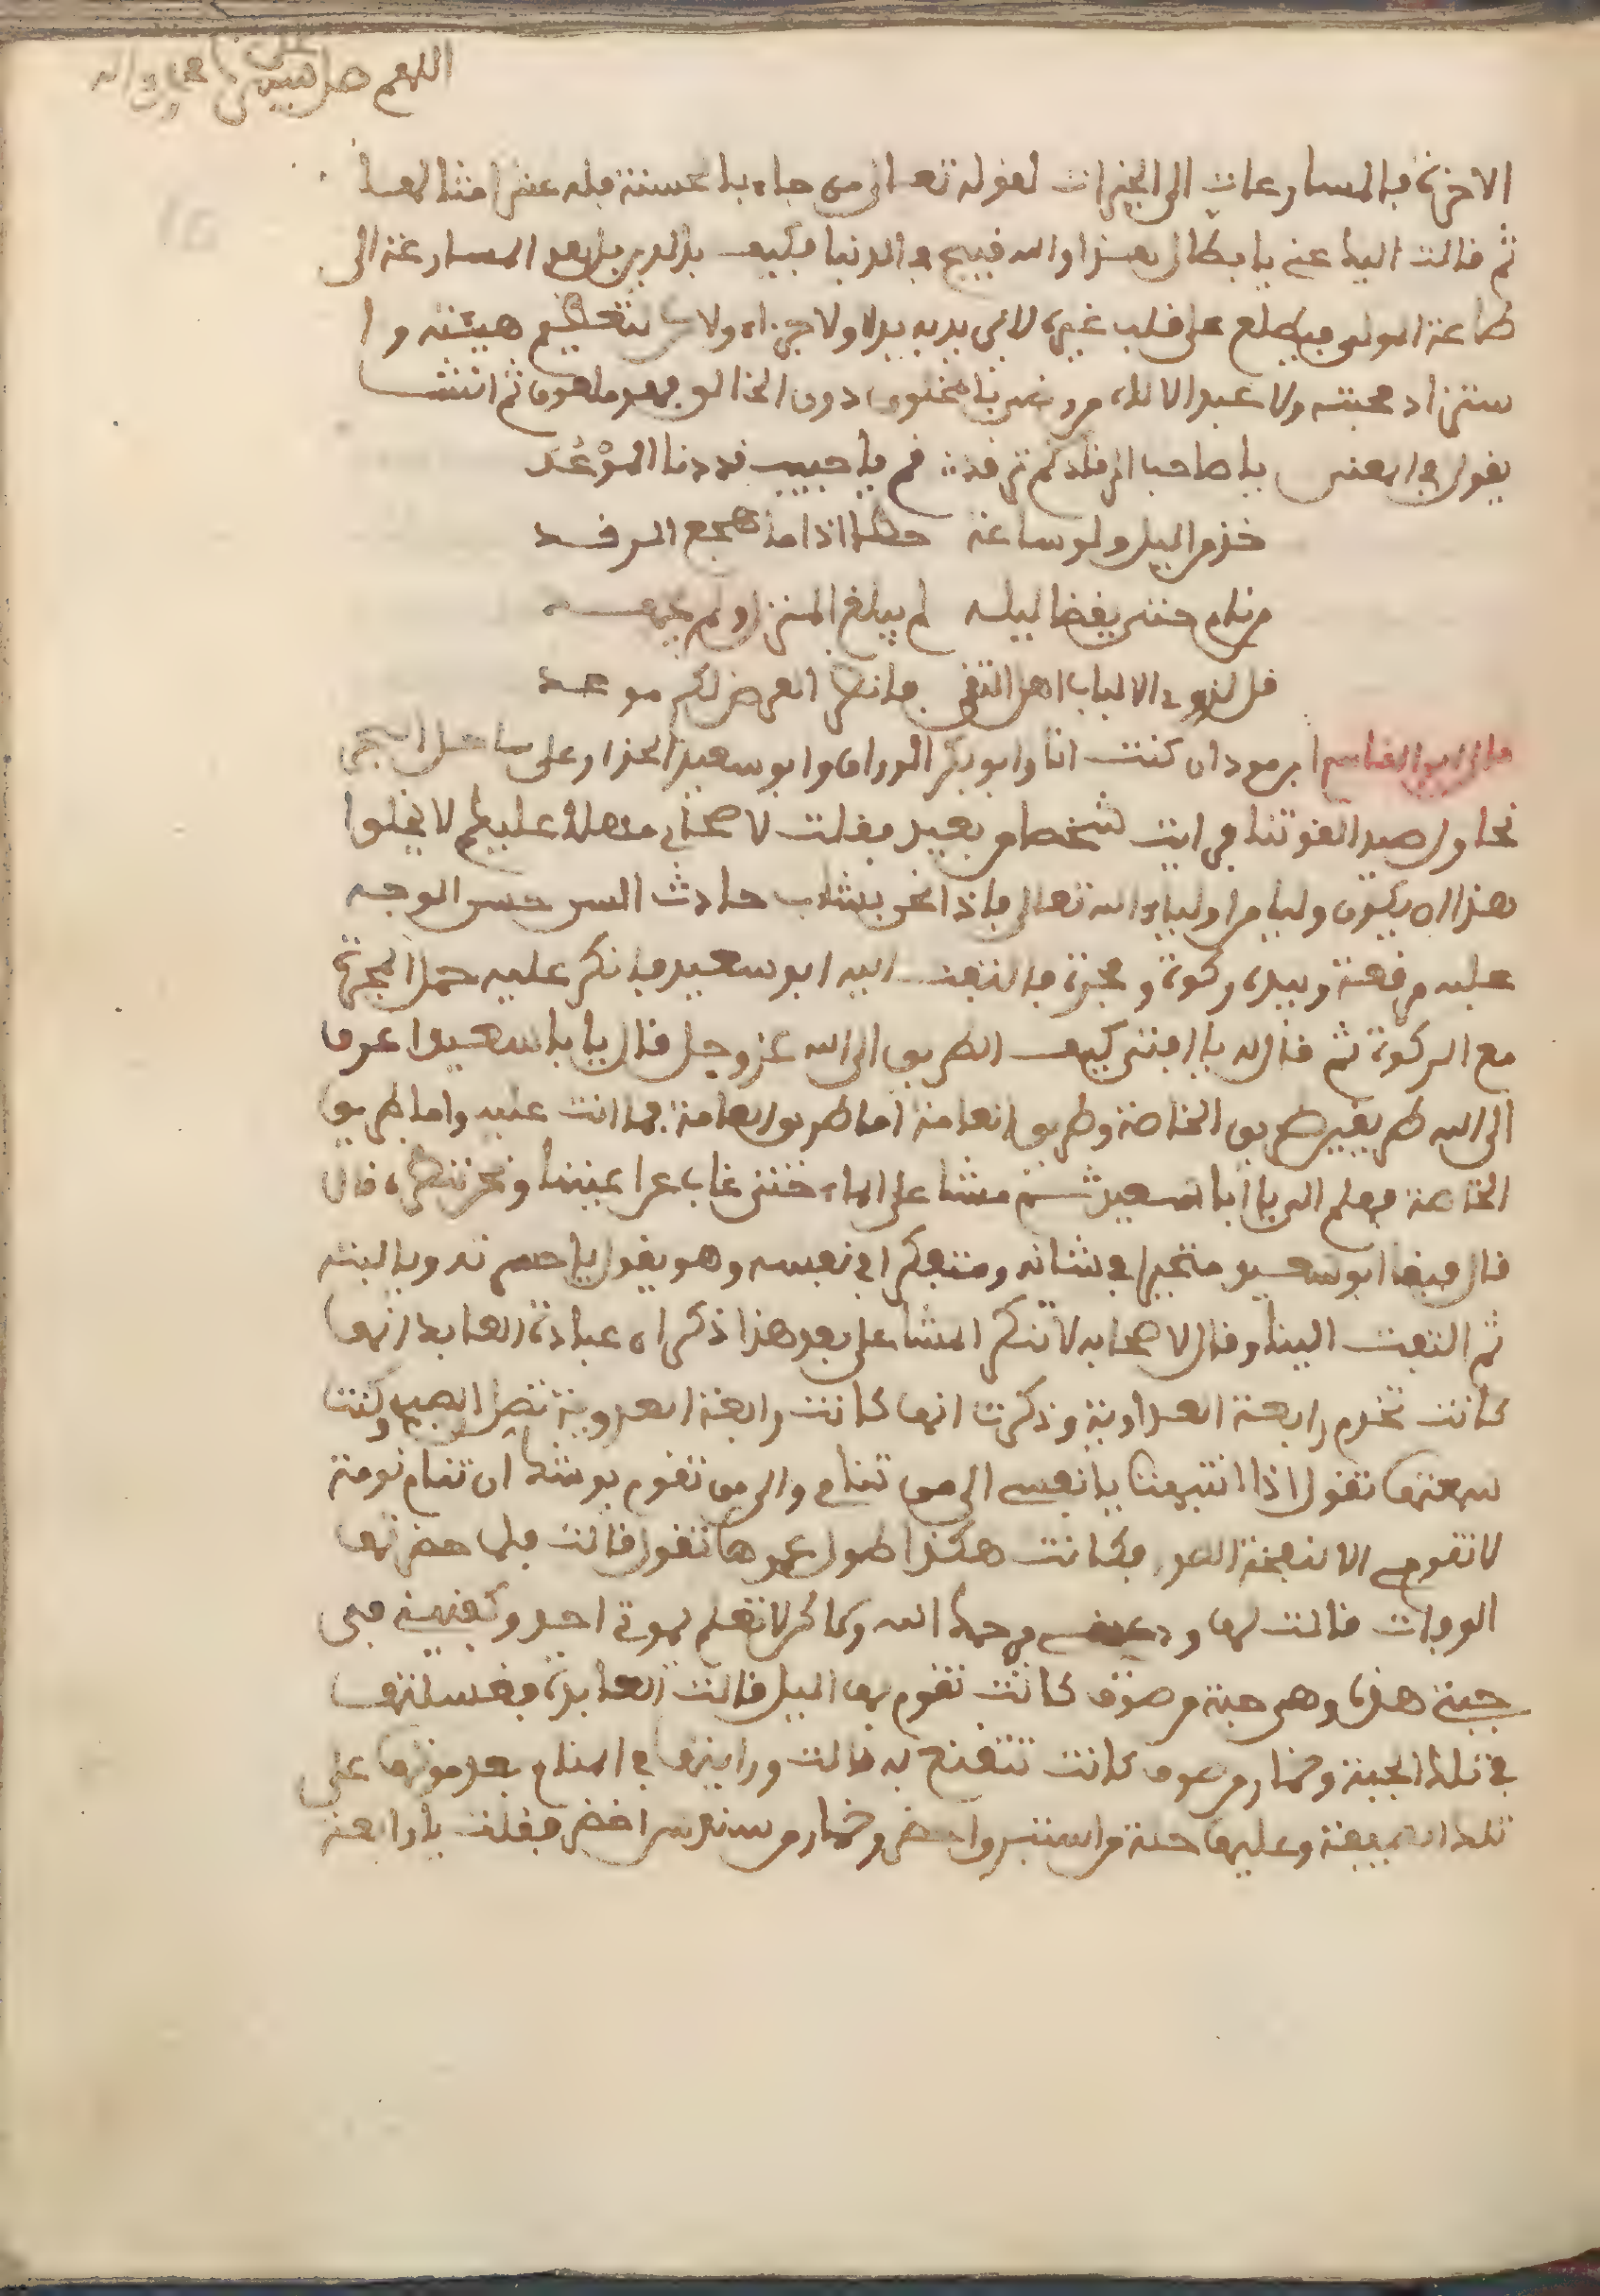 اللهم صل على سيدنا محمد واله
الاخرة بالمسارعات الى الخيرات لقوله تعالى من جاء بالحسنة فله عشر امثالها
ثم قالت اليك عني يا بطال هذا والله قبيح في الدنيا فكيف بالمسارعة الى
طاعة المولى فيطلع على قلب غيره لا يريد به بدلا ولا جزاء ولا تعظيم هيئته وا
ستزاد محبته ولا عبد الا لله دون الخالق فهو ثم انشا
يقول في المعنى يا صاحب الرقاد كم ترقد قم يا حبيب قد دنا الموعد
خذ من اليل ولو ساعة حظا اذا ما هجع الرقد
من نام حتى يقضا ليله لم يبلغ المنزل ولم يجهد
قل لذوي الالباب اهل التقى العرض لكم موعد
قال ابو القاسم ابن مردان كنت انا وابو بكر الوراق وابو سعيد الخزار على ساحل البحر
نحاول صيد القوتنا فرايت شخصا من بعيد فقلت لاصحابي مهلا عليكم لا يخلوا
هذا ان يكون وليا من اولياء الله تعالى فاذا نحن بشاب حادث السن حسن الوجه
عليه مرقعة وبيده ركوة ومحبرة فالتفت اليه ابو سعيد فانكر عليه حمل المحبرة
مع الركوة ثم قال له يا فتى كيف الطريق الى الله عز وجل قال يا با سعيد اعرف
الى الله طريقين طريق الخاصة وطريق العامة اما طريق العامة فما انت عليه واما طريق
الخاصة فهلم الي يا ابا سعيد ثم مشا على الماء حتى غاب عن اعيننا ونحن ننظره قال
قال فبقا ابو سعيد متحيرا في شانه ومتفكرا في نفسه وهو يقول يا حسرتاه ويا ليته
ثم التفت الينا وقال لاصحابه لا تنكر المشا على بعد هذا ذكر ان عبادة العابدة انها
كانت تخدم رابعة العداوية وذكرت انها كانت رابعة العدوية تصل الصبح وكنت
سمعتها تقول اذا انتبهت يا نفسي الى متى تنامي والى متى تقوم يوشك ان تنام نومة
لا تقومي الا لنفخة الصور فكانت هكذا طول عمرها تقول قالت فلما حضرتها
الوفات قالت لها ودعيني يرحمك الله وكما كن لا تعلم بموتي احد وكفنيني في
جبتي هذه وهي جبة من صوف كانت تقوم بها اليل قالت العابدة فغسلتها
في تلك الجبة وخمار من صوف كانت تتقنع به قالت ورايتها في المنام بعد موتها على
تلك الصفة وعليها حلة من استبرق اخضر وخمار من سندس اخضر فقلت يا رابعة